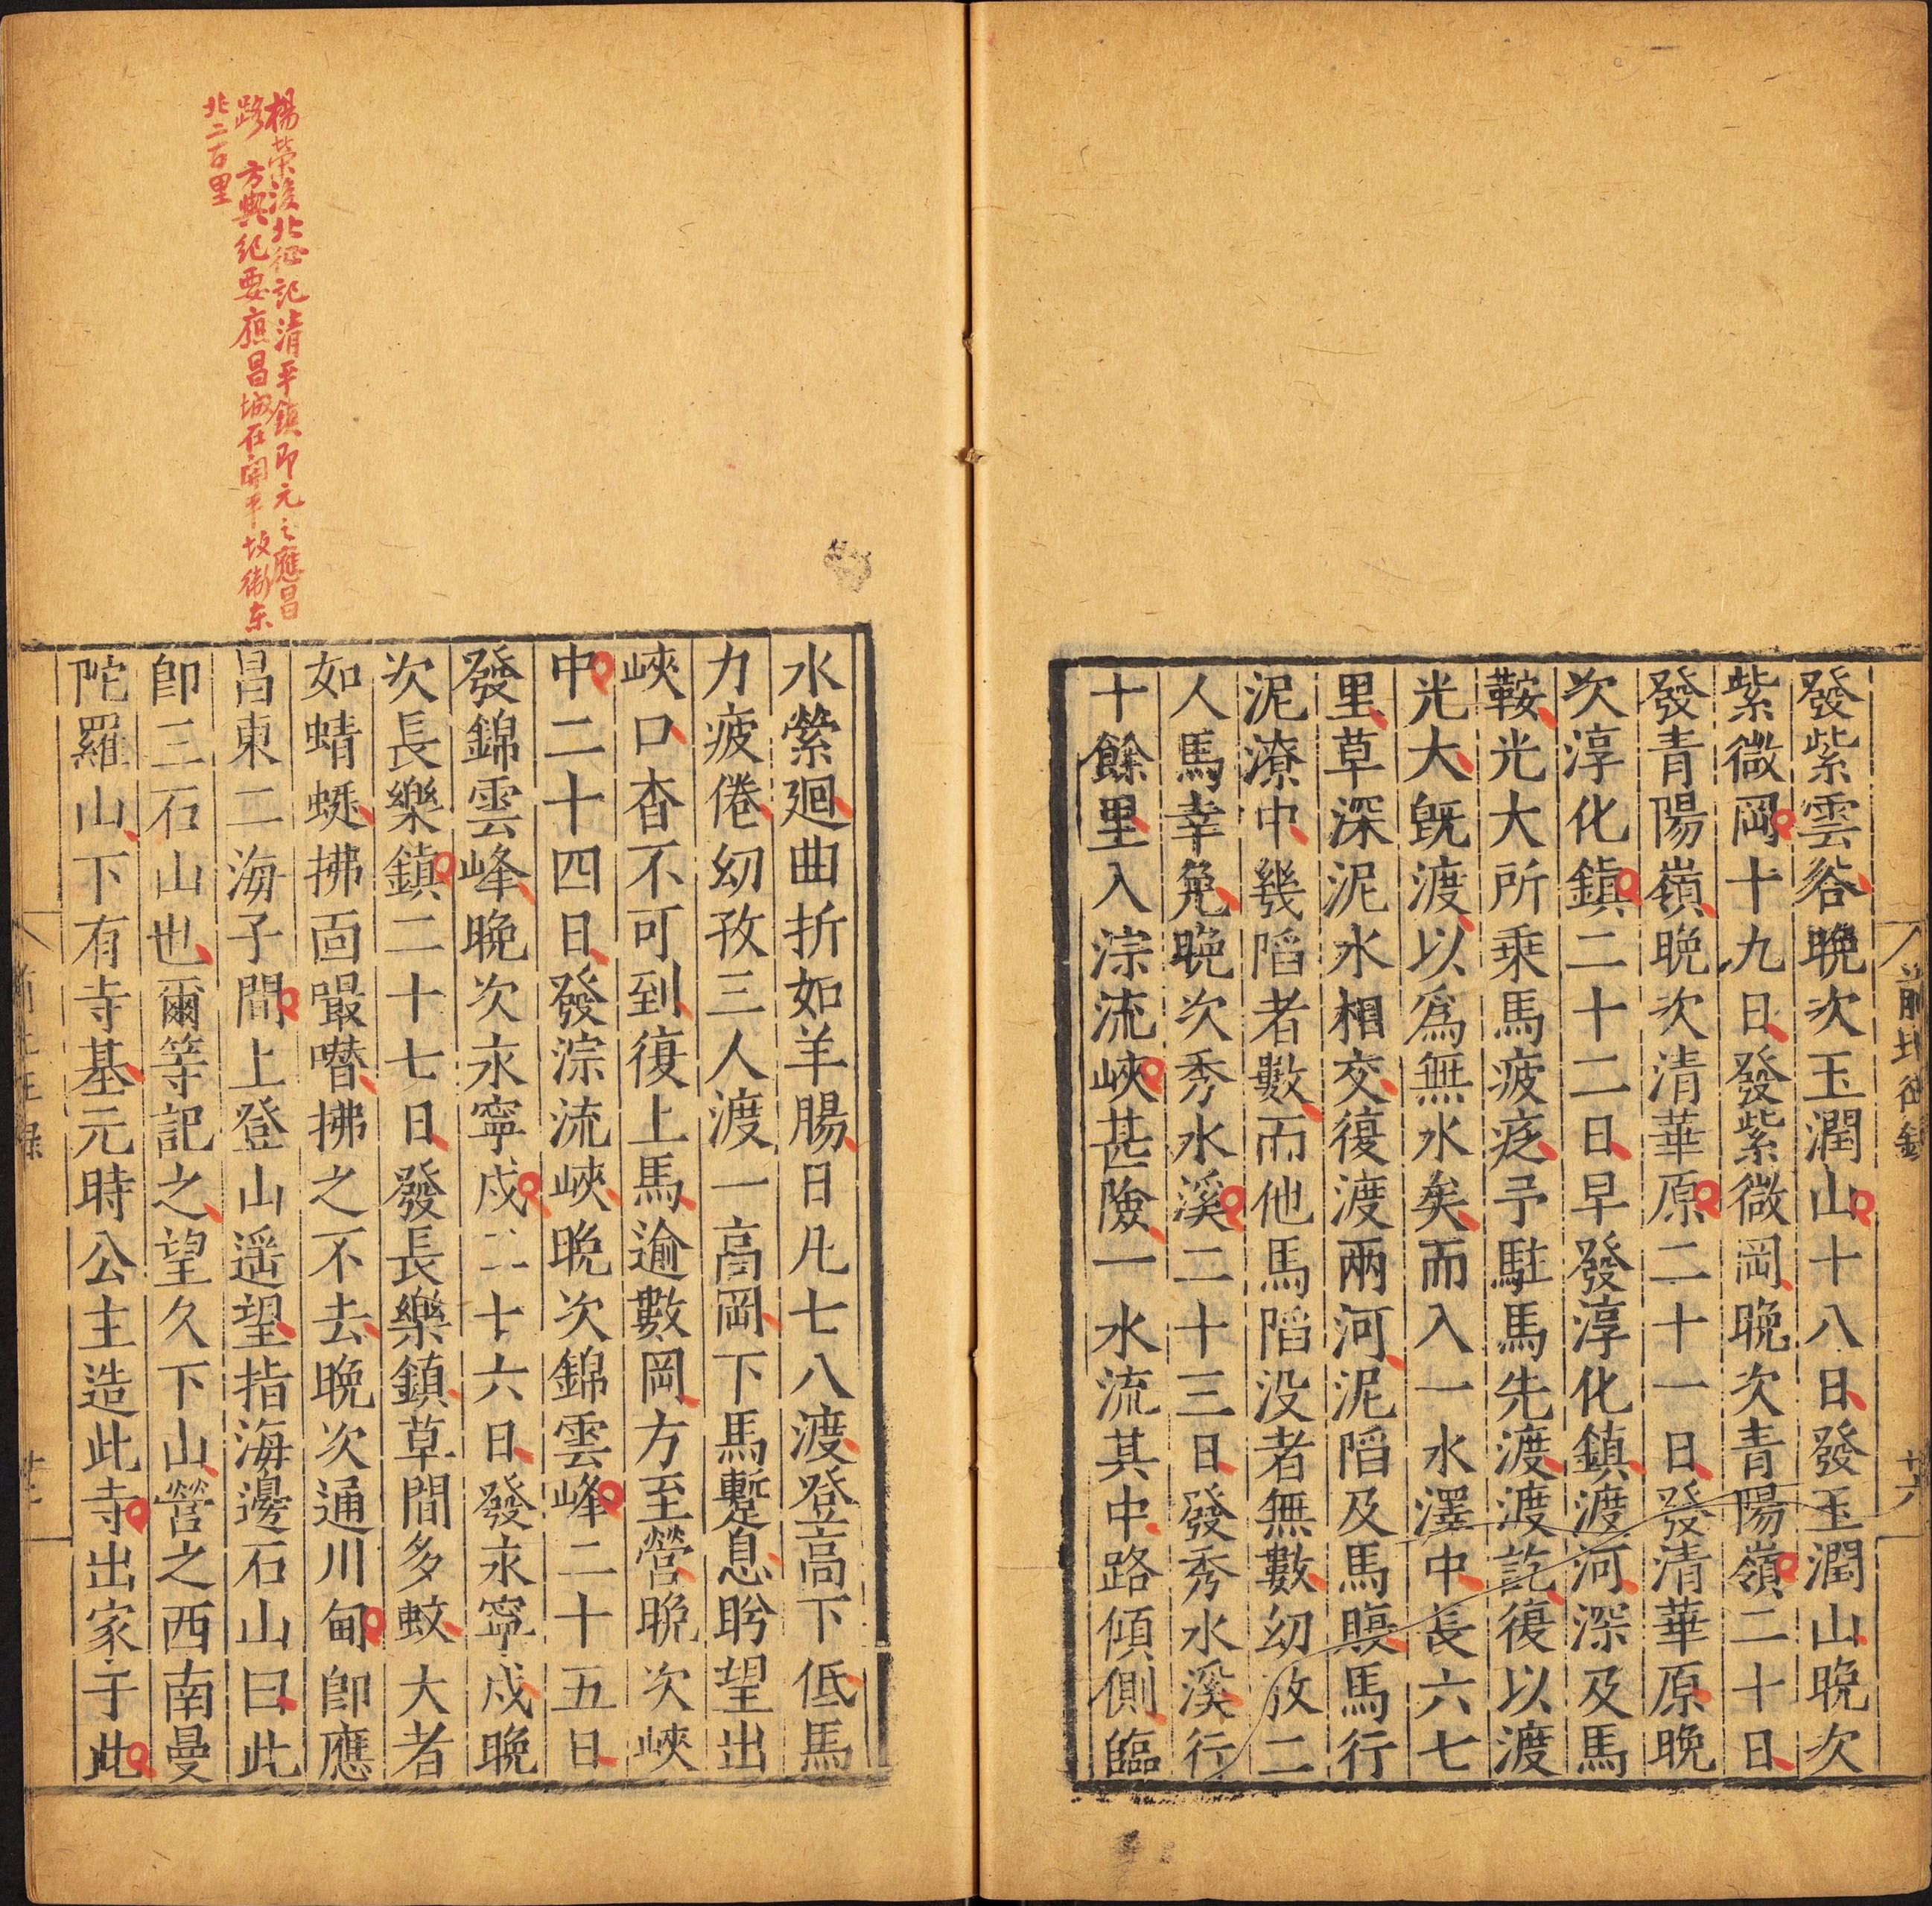 前北征錄
廿六
發紫雲谷晚次玉潤山十八日發玉潤山晚次
紫微岡十九日發紫微岡晚次青陽嶺二十日
發青陽嶺晚次清華原二十一日發清華原晚
次淳化鎮二十二日早發淳化鎮渡河深及馬
鞍光大所乗馬疲疾予駐馬先渡渡訖復以渡
光大旣渡以爲無水矣而入一水澤中長六七
里草深泥水相交復渡兩河泥陷及馬腹馬行
泥潦中幾陷者數而他馬陷没者無數幼孜二
人馬幸免晚次秀水溪二十三日發秀水溪行
十餘里入淙流峽甚險一水流其中路傾側臨
水縈廻曲折如羊腸日凡七八渡登高下低馬
力疲倦幼孜三人渡一高岡下馬蹔息盻望出
峽口杳不可到復上馬逾數岡方至營晚次峽
中二十四日發淙流峽晚次錦雲峰二十五日
發錦雲峰晚次永寧戍二十六日發永寧戍晚
次長樂鎮二十七日發長樂鎮草間多蚊大者
如蜻蜓拂面嘬噆拂之不去晚次通川甸卽應
昌東二海子間上登山遥望指海邊石山曰此
卽三石山也爾等記之望久下山營之西南曼
陀羅山下有寺基元時公主造此寺出家于此
楊榮後北征記清平鎮即元之應昌
路 方輿紀要應昌城在開平故衛東
北二百里